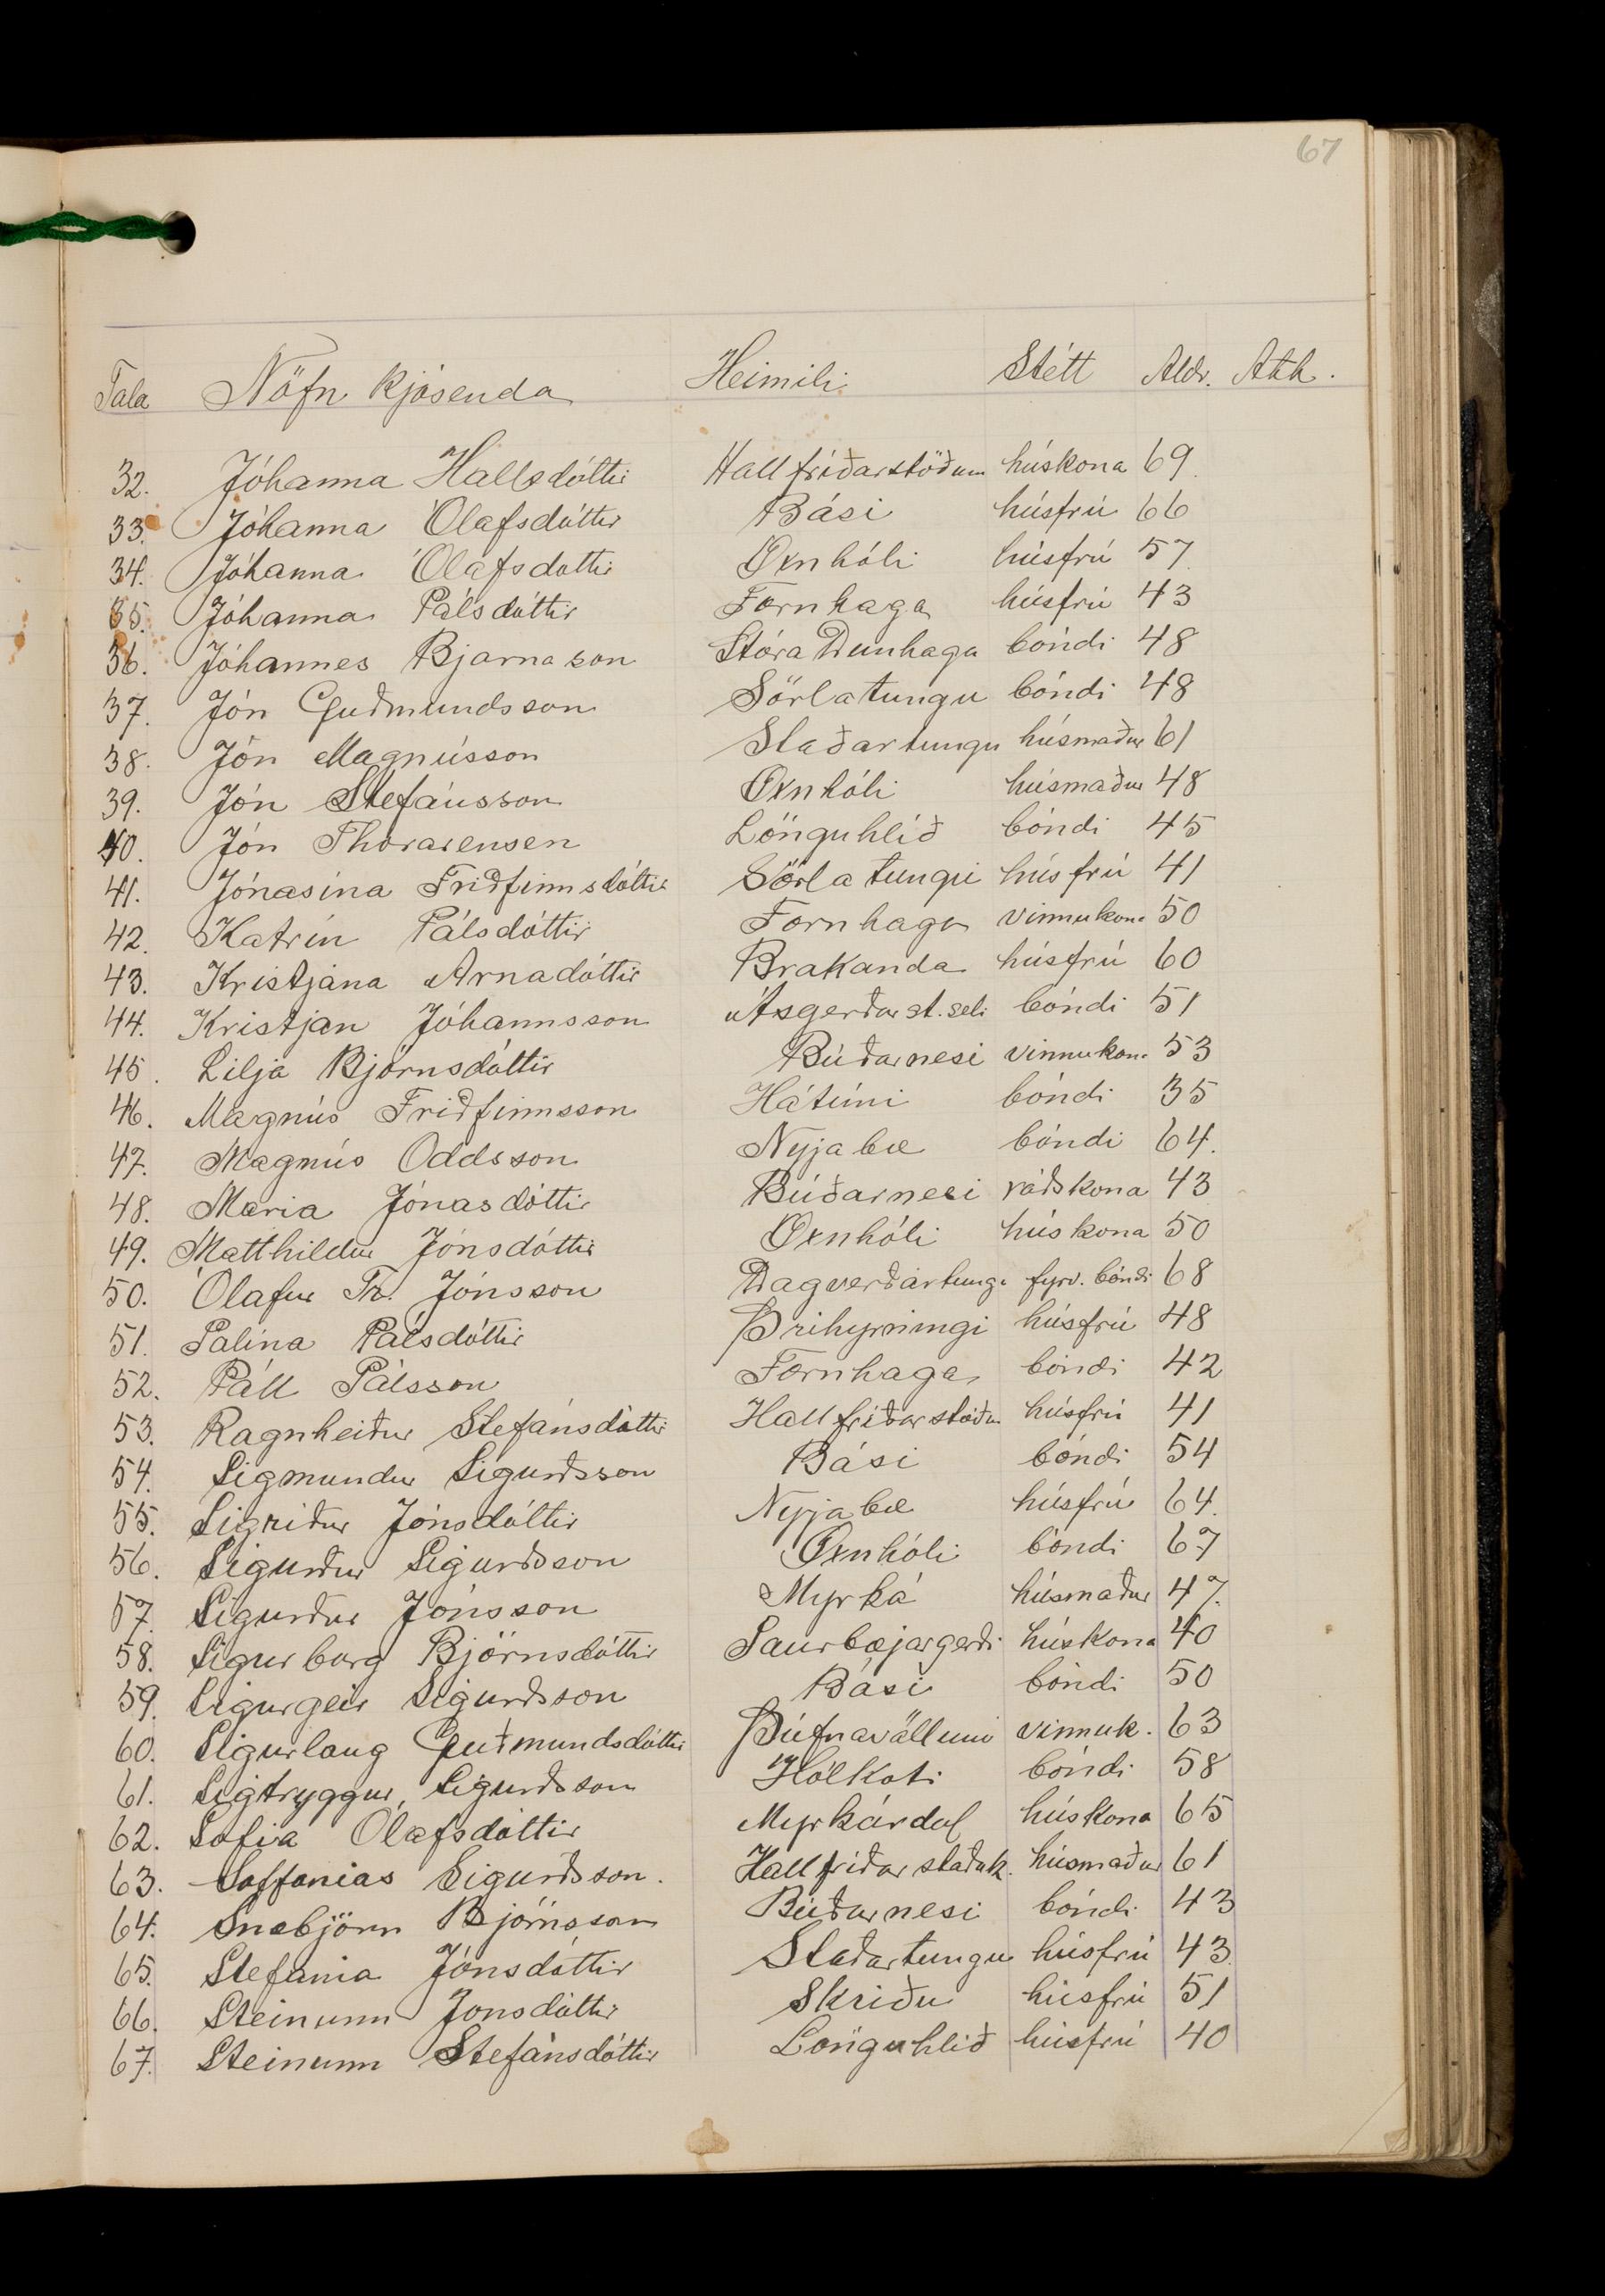 67
Tala Nöfn kjósenda Heimili Stétt Aldr. Ath.
32. Jóhanna Hallsdóttir Hallfríðarstöðum húskona 69.
33. Jóhanna Ólafsdóttir Bási húsfrú 66
34. Jóhanna Ólafsdottir Öxnhóli húsfrú 57.
35. Jóhanna Pálsdóttir Fornhaga húsfrú 43
36. Jóhannes Bjarnason Stóra Dunhaga bóndi 48
37. Jón Guðmundsson Sörlatungu bóndi 48
38. Jón Magnússon Staðartungu húsmaður 61
39. Jón Stefánsson Öxnhóli húsmaður 48
40. Jón Thorarensen Lönguhlíð bóndi 45
41. Jónasína Friðfinnsdóttir Sörlatungu húsfrú 41
42. Katrín Pálsdóttir Fornhaga vinnukona 50
43. Kristjana Arnadóttir Brakanda húsfrú 60
44. Kristjan Jóhannsson Ásgerðarst.seli bóndi 51
45. Lilja Björnsdóttir Búðarnesi vinnukona 53
46. Magnús Friðfinnsson Hátúni bóndi 35
47. Magnús Oddsson Nýjabæ bóndi 64.
48. Maria Jónasdóttir Búðarnesi ráðskona 43
49. Matthildur Jónsdóttir Öxnhóli húskona 50
50. Ólafur Tr. Jónsson Dagverðartungu fyrv. bóndi 68
51. Palína Pálsdóttir Þríhyrningi húsfrú 48
52. Páll Pálsson Fornhaga bóndi 42
53. Ragnheiður Stefánsdóttir Hallfríðarstöðum húsfrú 41
54. Sigmundur Sigurðsson Bási bóndi 54
55. Sigríður Jónsdóttir Nýjabæ húsfrú 64.
56. Sigurður Sigurðsson Öxnhóli bóndi 67
57. Sigurður Jónsson Myrká húsmaður 47.
58. Sigurborg Björnsdóttir Saurbæjargerði húskona 40
59. Sigurgeir Sigurðsson Bási bóndi 50
60. Sigurlaug Guðmundsdóttir Þúfnavöllum vinnuk. 63
61. Sigtryggur Sigurðsson Hólkoti bóndi 58
62. Sofia Ólafsdóttir Myrkárdal húskona 65
63. Soffonias Sigurðsson. Hallfríðarstaðak. húsmaður 61
64. Snæbjörn Björnsson Búðarnesi bóndi 43
65. Stefania Jónsdóttir Staðartungu húsfrú 43.
66. Steinunn Jonsdóttir Skriðu húsfrú 51
67. Steinunn Stefánsdóttir Lönguhlíð húsfrú 40